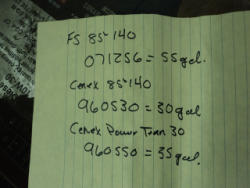 FS 85-140
071256 = 55gal.
Cenex 85-140
960530 = 30gal
Cenex Power Tran 30
960550 = 35gal.